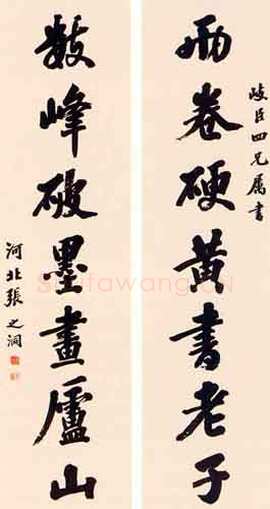 岐臣四兄属書
兩卷硬黄書老子
數峰破墨畫廬山
河北張之洞
Shufawang.CN